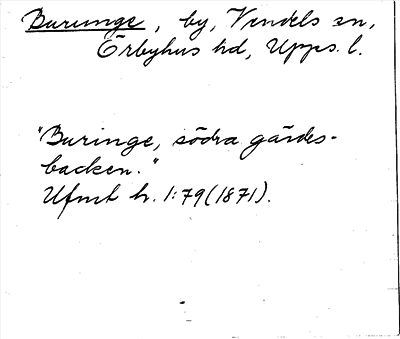 Burunge, by, Vendels sn,
Örbyhus hd, Upps. l.
"Buringe, södra gärdes-
backen."
Ufmt h. 1:79 (1871).